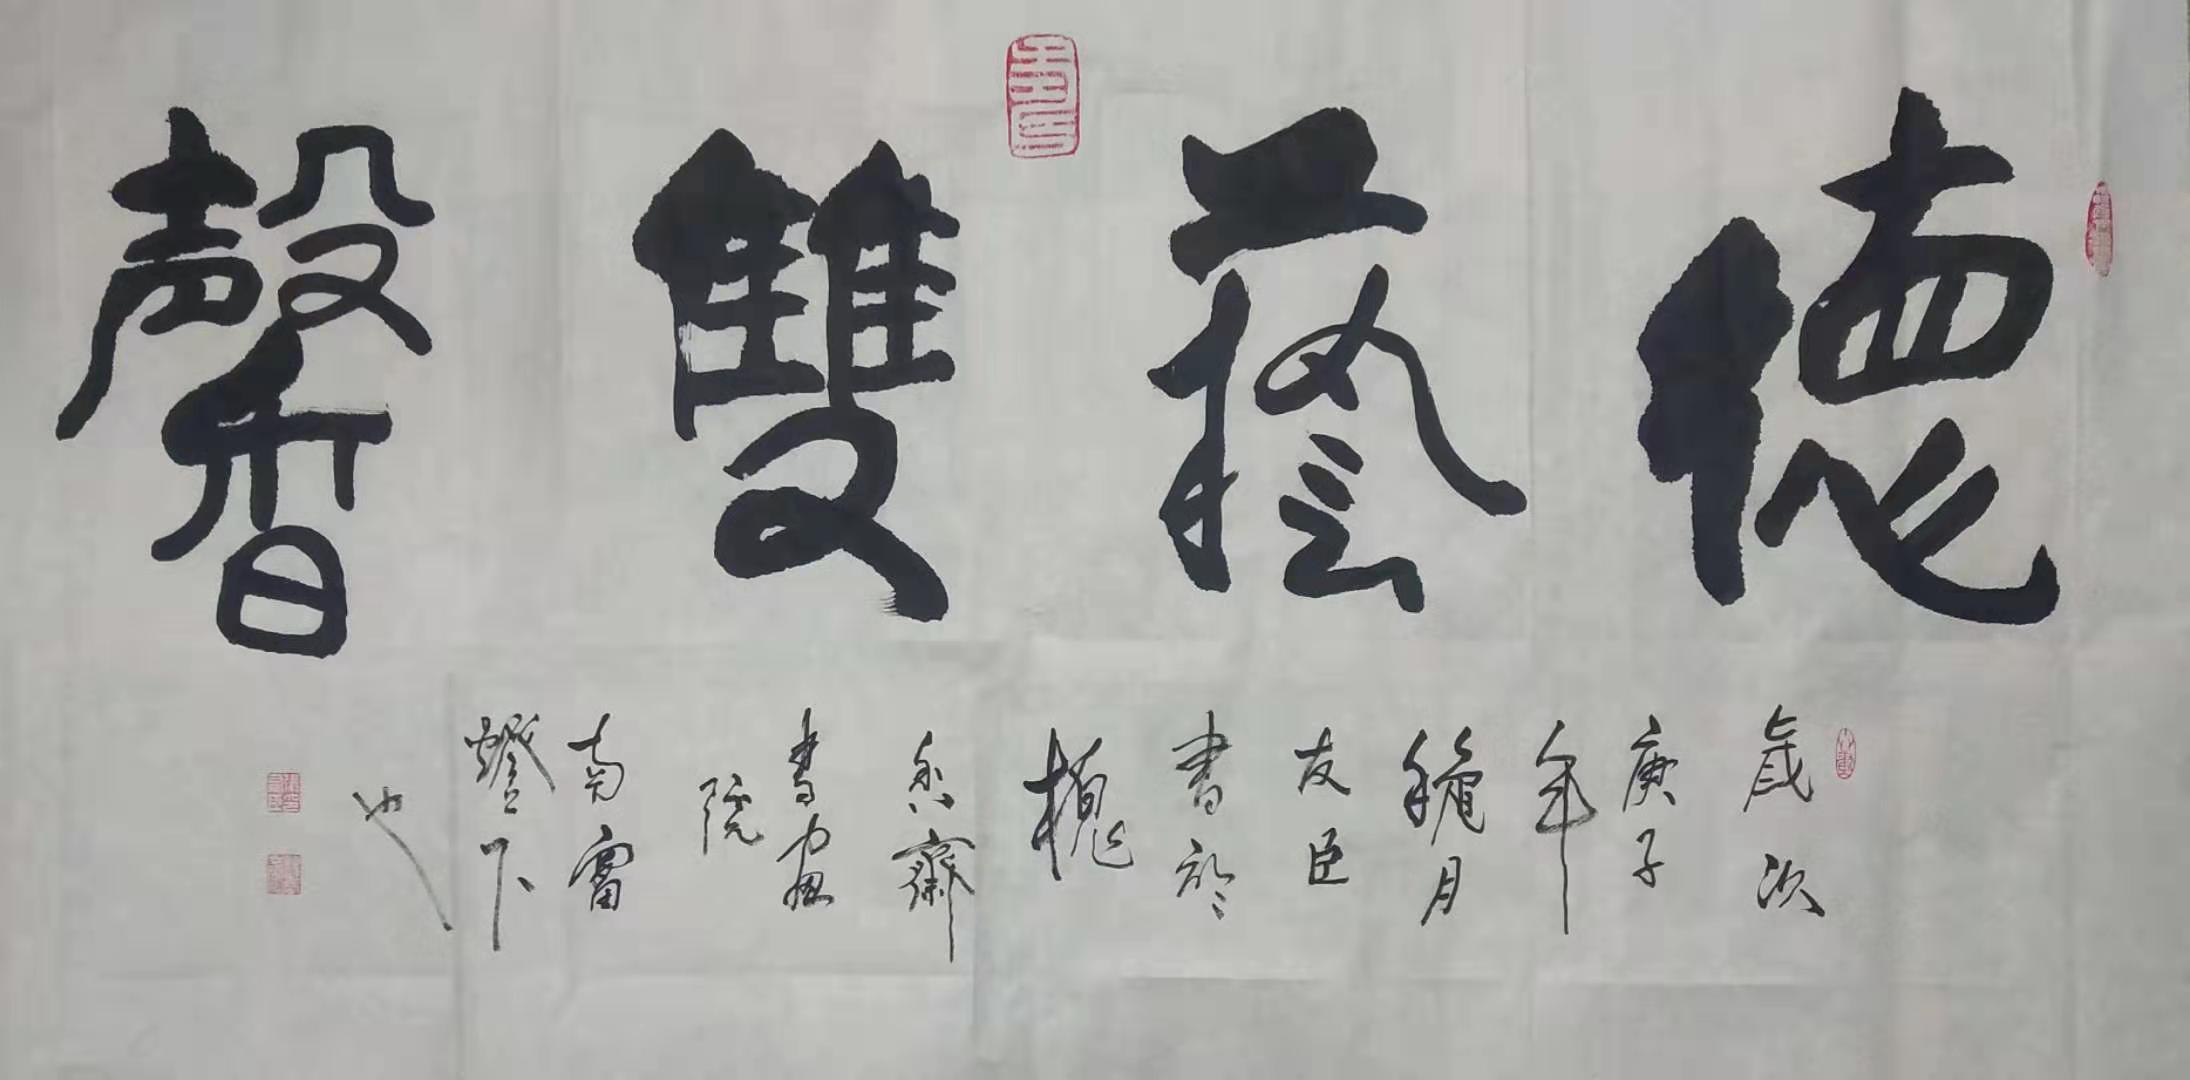 德藝雙馨
歲次
庚子
年
穐月
友臣
書於
槐
香齋
書畫
院
南窗
燈下
也